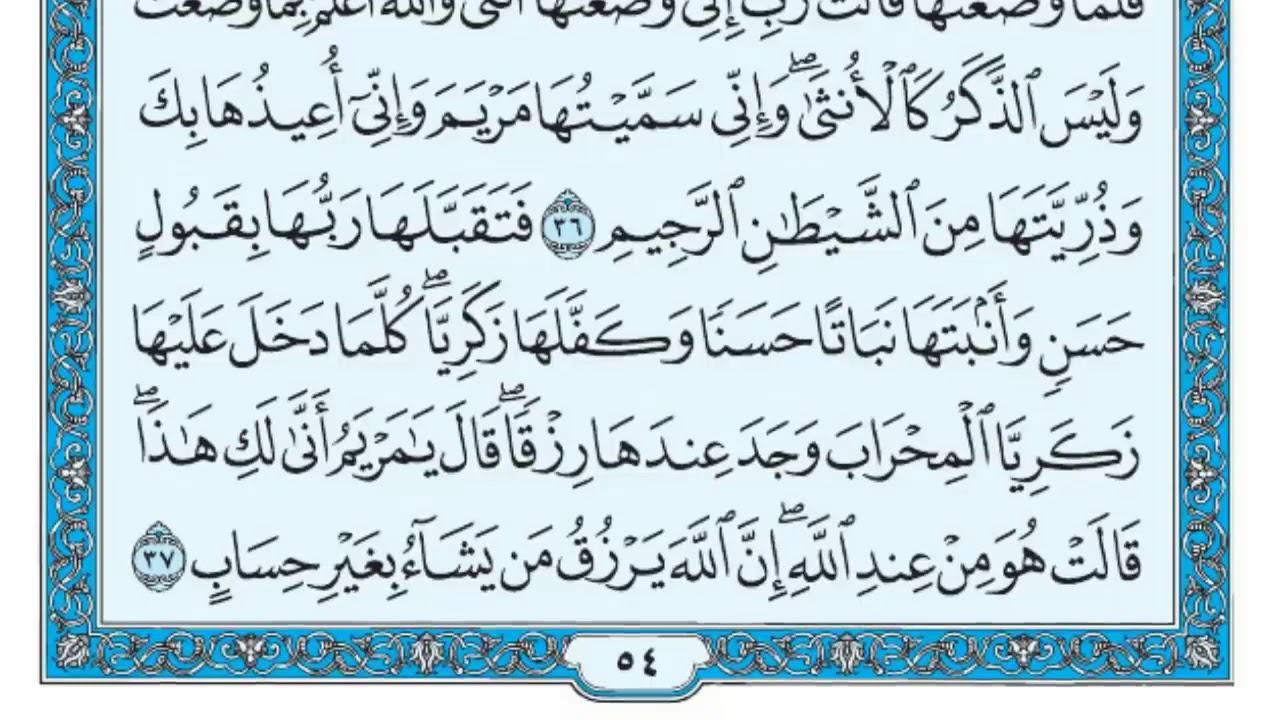 فَلَمَّا وَضَعَتْهَا قَالَتْ رَبِّ إِنِّي وَضَعْتُهَا أُنثَىٰ وَٱللَّهُ أَعْلَمُ بِمَا وَضَعَتْ
وَلَيْسَ ٱلذَّكَرُ كَٱلْأُنثَىٰۖ وَإِنِّي سَمَّيْتُهَا مَرْيَمَ وَإِنِّيٓ أُعِيذُهَا بِكَ
وَذُرِّيَّتَهَا مِنَ ٱلشَّيْطَٰنِ ٱلرَّجِيمِ ٣٦ فَتَقَبَّلَهَا رَبُّهَا بِقَبُولٍ
حَسَنٍ وَأَنۢبَتَهَا نَبَاتًا حَسَنًا وَكَفَّلَهَا زَكَرِيَّاۖ كُلَّمَا دَخَلَ عَلَيْهَا
زَكَرِيَّا ٱلْمِحْرَابَ وَجَدَ عِندَهَا رِزْقًاۖ قَالَ يَٰمَرْيَمُ أَنَّىٰ لَكِ هَٰذَاۖ
قَالَتْ هُوَ مِنْ عِندِ ٱللَّهِۖ إِنَّ ٱللَّهَ يَرْزُقُ مَن يَشَآءُ بِغَيْرِ حِسَابٍ ٣٧
٥٤